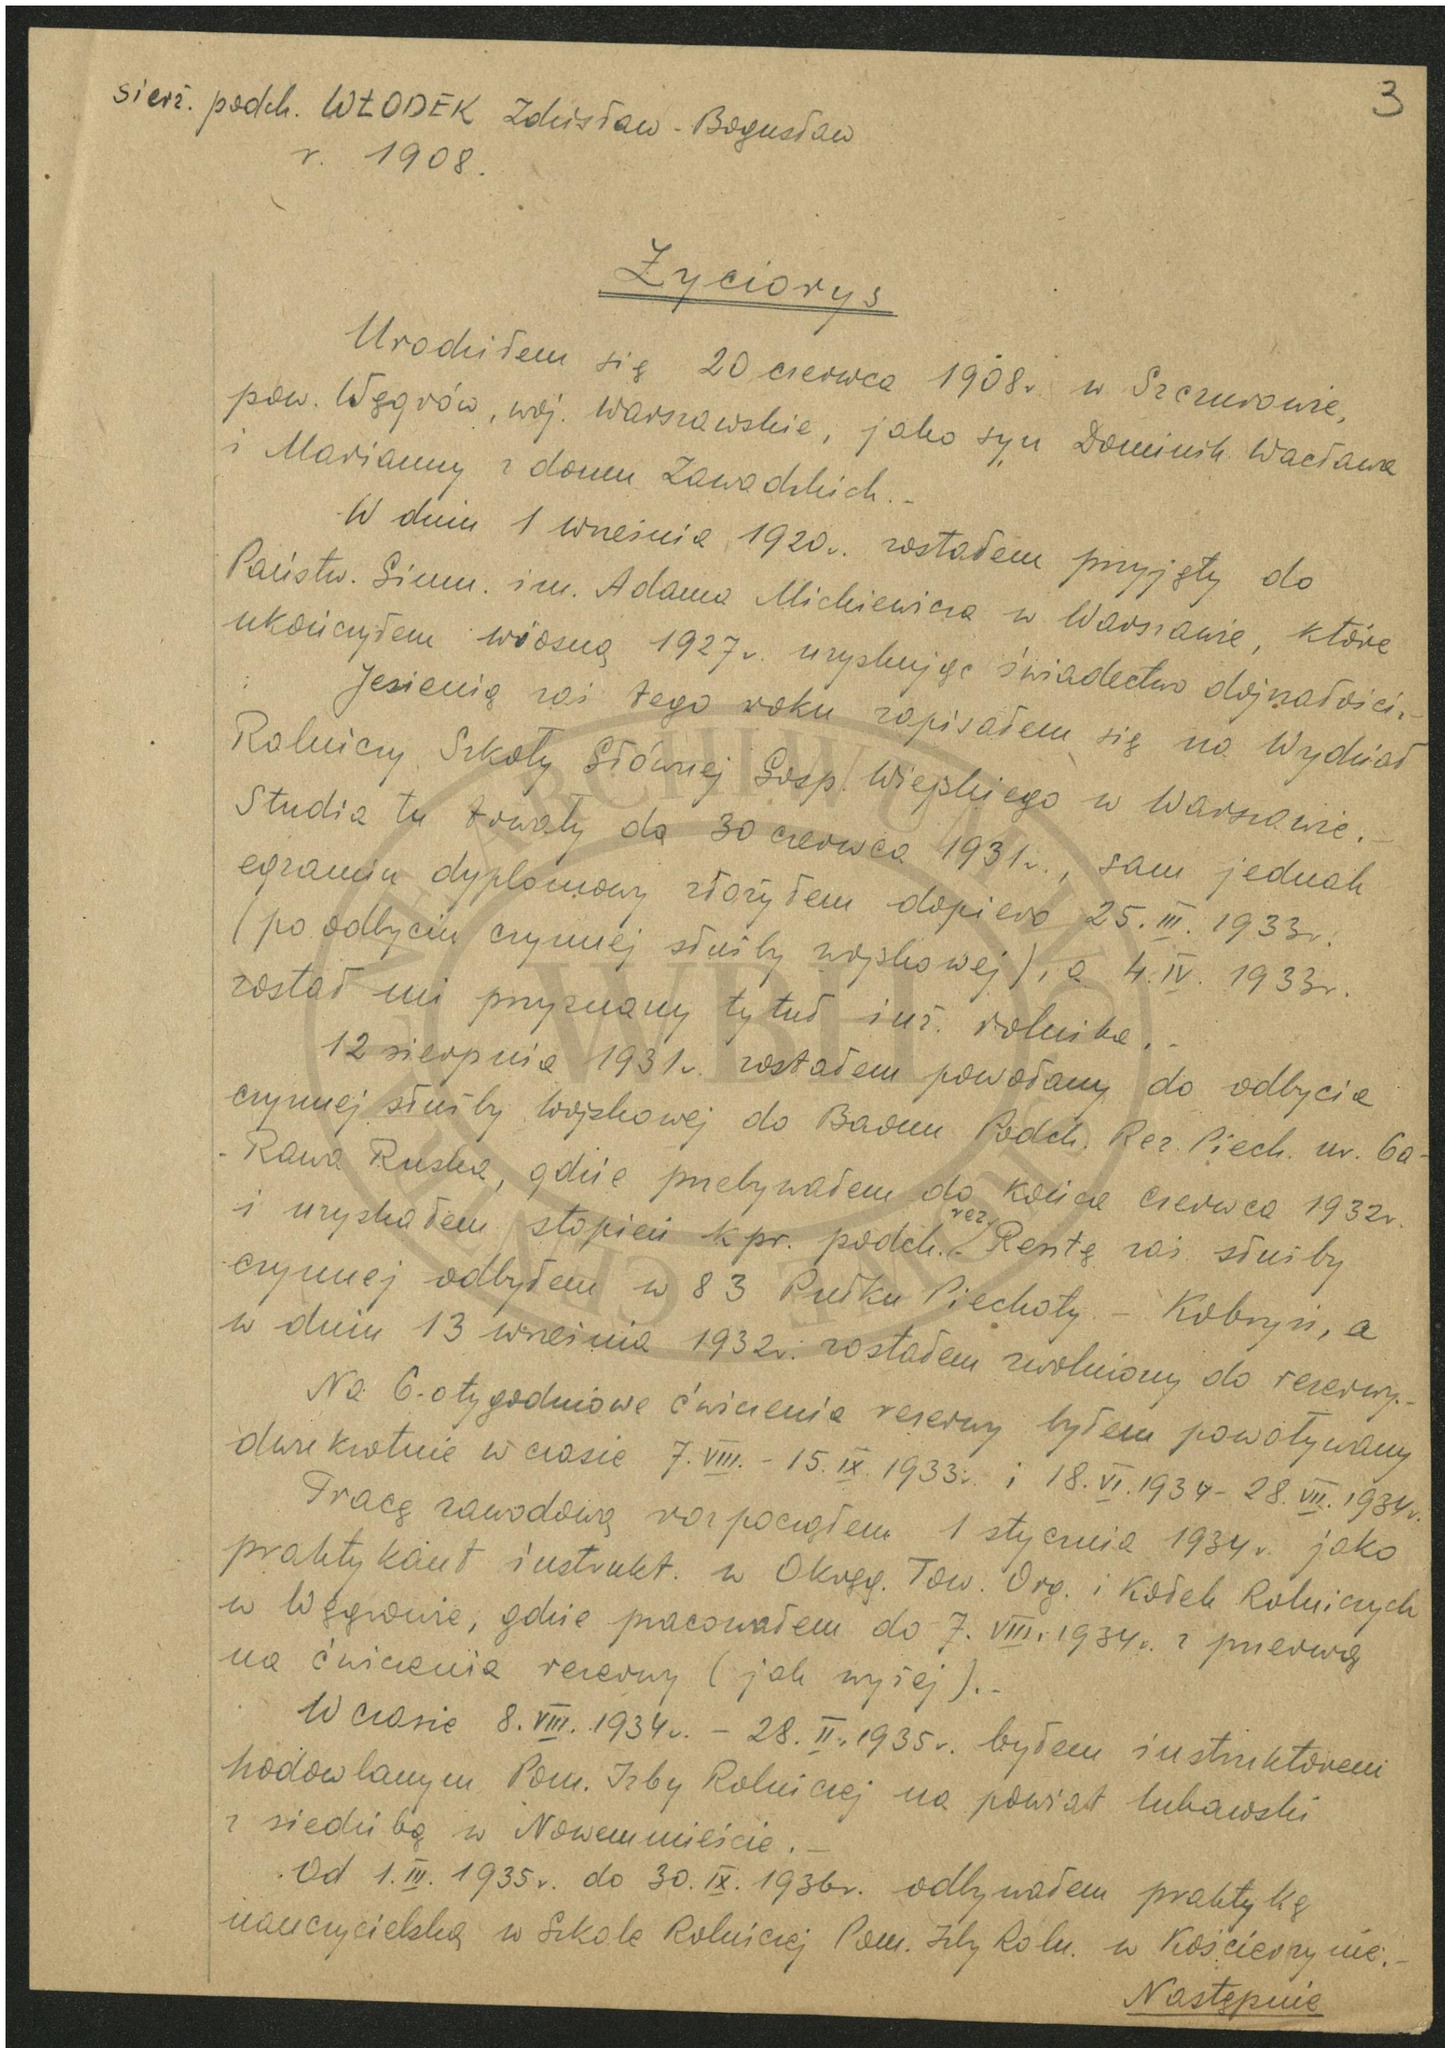 3
sierż. podch. WŁODEK Zdzisław-Bogusław
r. 1908.
Życiorys
Urodziłem się 20 czerwca 1908r. w Szczurowie,
pow. Węgrów, woj. Warszawskie, jako syn Dominik. Wacława
i Marianny z domu Zawadzkich.-
W dniu 1 września 1920r. zostałem przyjęty do
Państw. Gimn. im. Adama Mickiewicza w Warszawie, które
ukończyłem wiosną 1927r. uzyskując świadectwo dojrzałości.-
Jesienią zaś tego roku zapisałem się na Wydział
Rolniczy Szkoły Głównej Gosp. Wiejskiego w Warszawie.-
Studia tu trwały do 30 czerwca 1931r., sam jednak
egzamin dyplomowy złożyłem dopiero 25.III.1933r.
(po odbyciu czynnej służby wojskowej), a 4.IV.1933r.
został mi przyznany tytuł inż. rolnika.-
12 sierpnia 1931r. zostałem powołany do odbycia
czynnej służby wojskowej do Baonu Podch. Rez. Piech. nr. 6a-
-Rawa Ruska, gdzie przebywałem do końca czerwca 1932r.
i uzyskałem stopień kpr. podch. rez.- Resztę zaś służby
czynnej odbyłem w 83 Pułku Piechoty - Kobryń, a
w dniu 13 września 1932r. zostałem zwolniony do rezerwy.-
Na 6-otygodniowe ćwiczenia rezerwy byłem powoływany
dwukrotnie w czasie 7.VIII.-15.IX.1933r. i 18.VI.1934-28.VII.1934r.
Pracę zawodową rozpocząłem 1 stycznia 1934r. jako
praktykant instrukt. w Okręg. Tow. Org. i Kółek Rolniczych
w Węgrowie, gdzie pracowałem do 7.VIII.1934r. z przerwą
na ćwiczenia rezerwy (jak wyżej).-
W czasie 8.VIII.1934r. - 28.II.1935r. byłem instruktorem
hodowlanym Pom. Izby Rolniczej na powiat lubawski
z siedzibą w Nowemmieście.-
Od 1.III.1935r. do 30.IX.1936r. odbywałem praktykę
nauczycielską w Szkole Rolniczej Pom. Izby Roln. w Kościerzynie.-
Następnie
ARCHIWUM
WBH